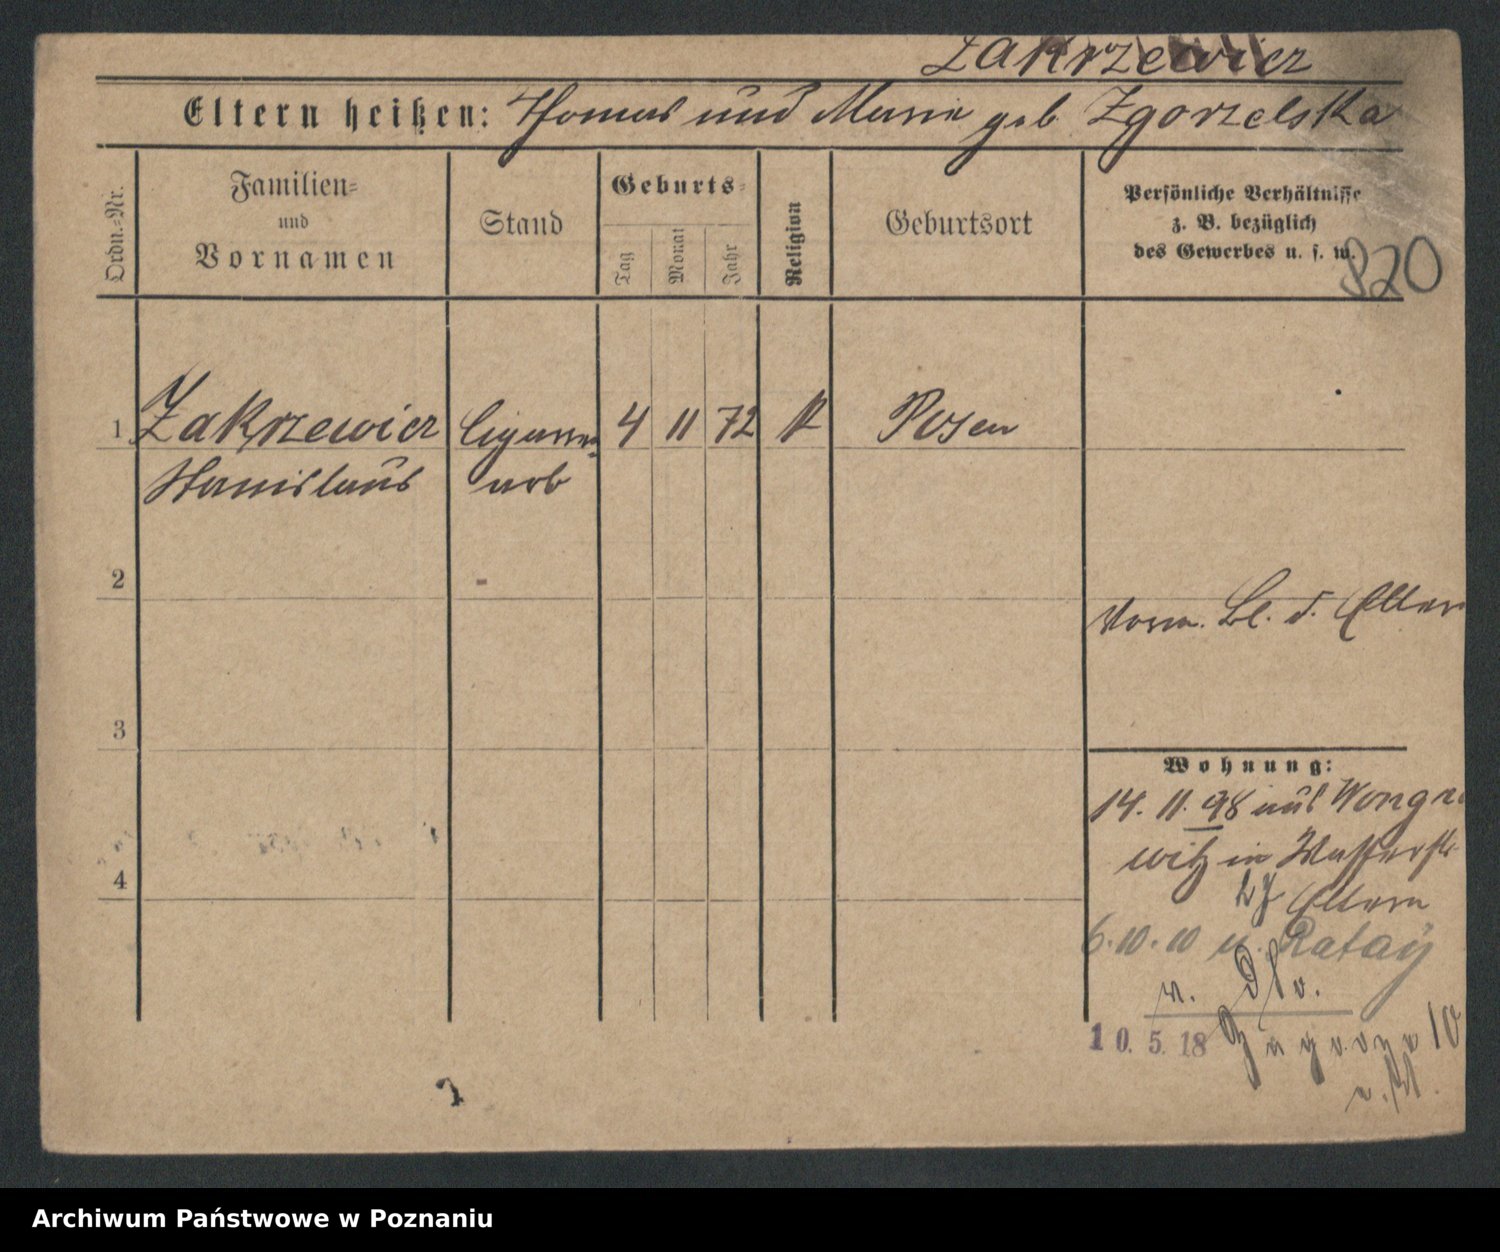 Zakrzewicz
Eltern heißen: Thomas und Maria geb Zgorzelska
Ordn.-Nr.
Familien-
und
Vornamen
Stand
Geburts-
Tag
Monat
Jahr
Religion
Geburtsort
Persönliche Verhältnisse
z. B. bezüglich
des Gewerbes u. s. w.
820
1 Zakrzewicz Cigarren- 4 11 72 K Posen
Stanislaus arb
2
Vorm. Bl. d. Eltern
3
Wohnung:
14. 11. 98 aus Wongro
witz in Wasserstr
27 Eltern
4
6. 10. 10 n. Ratay
10. 5. 18
Archiwum Państwowe w Poznaniu